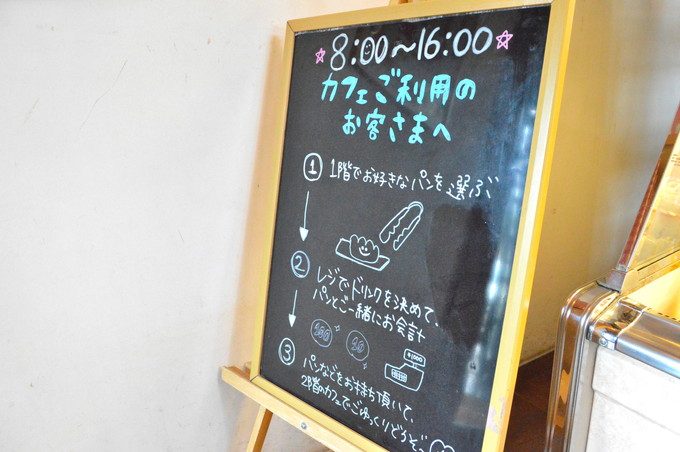 ☆8:00～16:00☆
カフェご利用の
お客さまへ
① 1階でお好きなパンを選ぶ
② レジでドリンクを決めて、
パンとご一緒にお会計
③ パンなどをお持ち頂いて、
2階のカフェでごゆっくりどうぞ♡